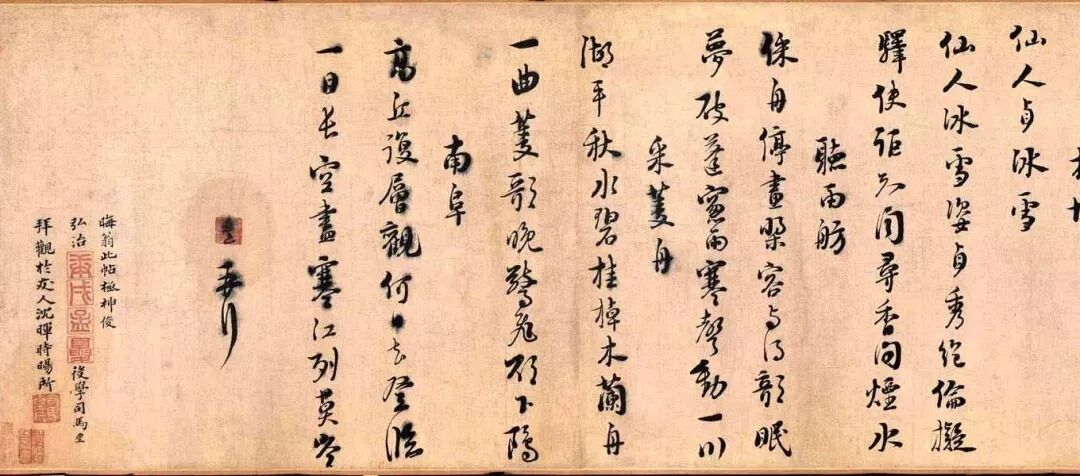 仙人貞冰雪
仙人冰雪姿貞秀絕倫擬
驛使詎知聞尋香問煙水
聽雨舫
綵舟停畫槳容與得欹眠
夢破蓬窗雨寒聲動一川
采菱舟
湖平秋水碧桂棹木蘭舟
一曲菱歌晚驚飛欲下鷗
南阜
高丘復層觀何日去登臨
一目長空盡寒江列莫岑
熹再拜
晦翁此帖極神俊
弘治 後學司馬堊
拜觀於友人沈暉時暘所